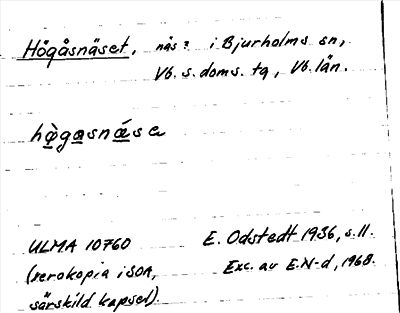 Högåsnäset, näs? i Bjurholms sn,
Vb. s. doms. tg, Vb. län.
hø̀gasnǽsa
ULMA 10760 E. Odstedt 1936, s. 11.
(xerokopia i SOA, Exc. av E.N-d, 1968.
särskild kapsel).